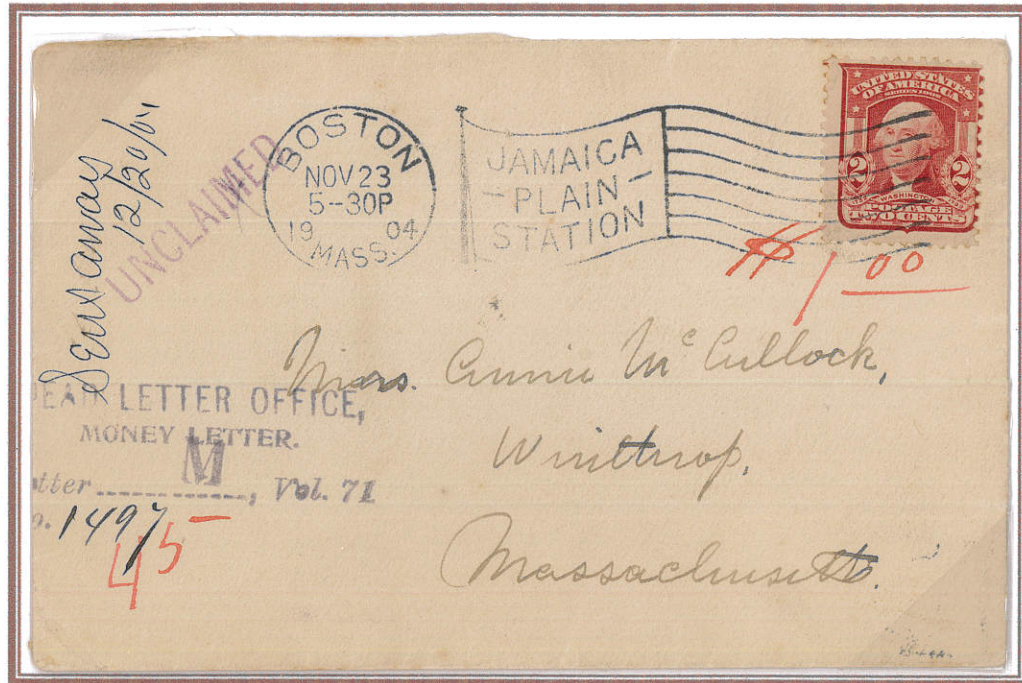 Sent away
12/20/04
UNCLAIMED
BOSTON
NOV 23
5-30P
19 04
MASS.
JAMAICA
PLAIN
STATION
UNITED STATES
OF AMERICA
SERIES 1902
2 2
WASHINGTON
POSTAGE
TWO CENTS
$1 00
Mrs. Annie Mc Cullock,
Winthrop,
Massachusetts.
EAD LETTER OFFICE,
MONEY LETTER.
M
tter ............, Vol. 71
o. 1497
45